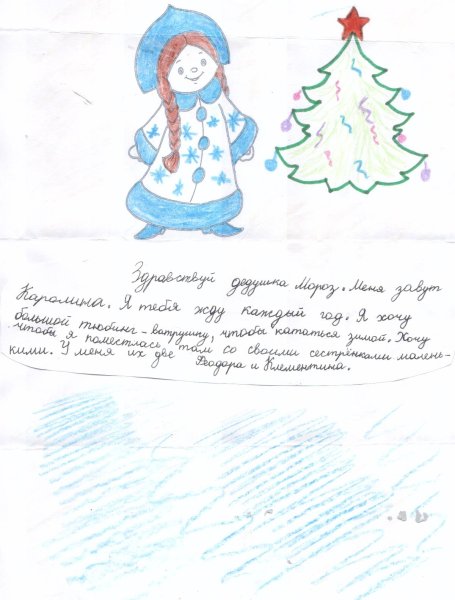 Здравствуй дедушка Мороз. Меня завут
Каролина. Я тебя жду каждый год. Я хочу
большой тюбинг-ватрушку, чтобы кататься зимой. Хочу
чтобы я поместлась, там со своими сестрёнками малень-
кими. У меня их две Феодора и Клементина.